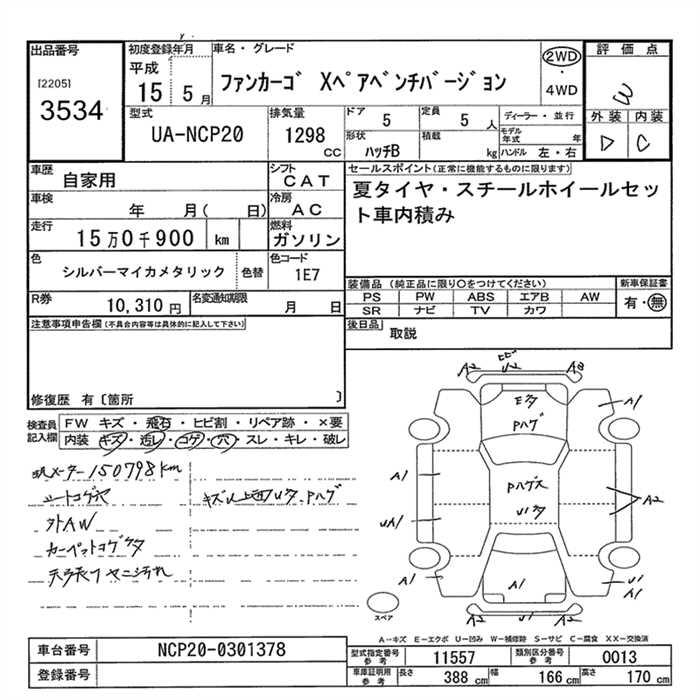 出品番号
[2205]
3534
初度登録年月
平成
15 5月
車名・グレード
ファンカーゴ Xペアベンチバージョン
2WD
・
4WD
評価点
W
外装 内装
D C
型式
UA-NCP20
排気量
1298
CC
ドア
5
定員
5 人
ディーラー・並行
形状
ハッチB
積載
kg
モデル年式 年
ハンドル 左・右
車歴
自家用
シフト
CAT
車検
年 月( 日)
冷房
AC
走行
15万0千900 km
燃料
ガソリン
色
シルバーマイカメタリック
色替
色コード
1E7
R券
10,310円
名変通知期限
月 日
セールスポイント(正常に機能するものに限ります)
夏タイヤ・スチールホイールセッ
ト車内積み
装備品(純正品に限り○をつけてください)
PS PW ABS エアB AW
SR ナビ TV カワ
新車保証書
有・無
後日品 取説
注意事項申告欄(不具合内容等は具体的に記入して下さい)
修復歴 有〔箇所 〕
検査員
記入欄
FW キズ・飛石・ヒビ割・リペア跡・×要
内装 キズ・汚レ・コゲ・穴・スレ・キレ・破レ
メーター150798km
シートコゲ穴
外AW
カーペットコゲ
天張り ヤニ汚れ
A2
U2
A2
A1
A1
UA1
A2
A1
A1
U1
A1
A1
A2
U2
スペア
A-キズ E-エクボ U-凹み W-補修跡 S-サビ C-腐食 XX-交換済
車台番号
NCP20-0301378
登録番号
型式指定番号
参考
11557
類別区分番号
参考
0013
車庫証明用
参考
長さ
388 cm
幅
166 cm
高さ
170 cm